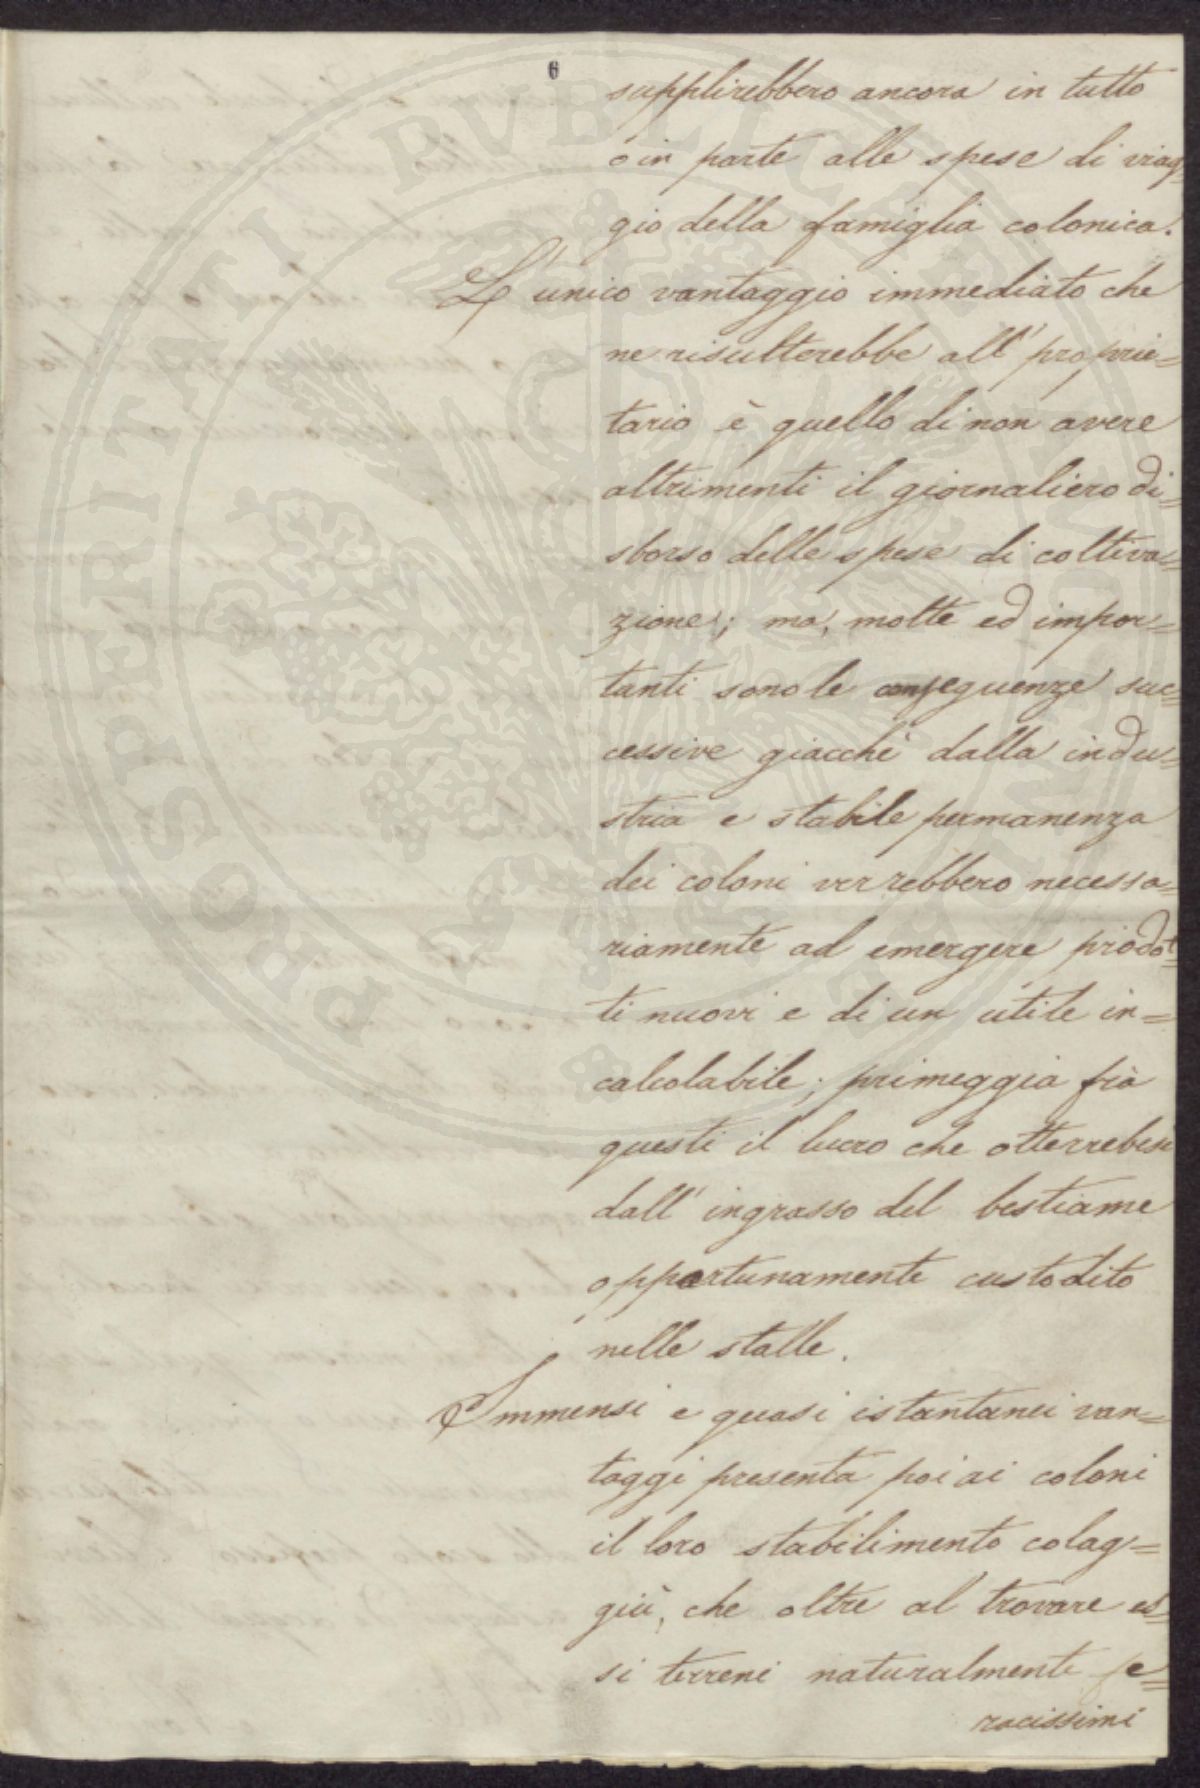 6
supplirebbero ancora in tutto
o in parte alle spese di viag=
gio della famiglia colonica.
L'unico vantaggio immediato che
ne risulterebbe all' proprie=
tario è quello di non avere
altrimenti il giornaliero di=
sborso delle spese di coltiva=
zione; ma, molte ed impor=
tanti sono le conseguenze suc=
cessive giacchè dalla indu=
stria e stabile permanenza
dei coloni verrebbero necessa=
riamente ad emergere prodot=
ti nuovi e di un utile in=
calcolabile; primeggia frà
questi il lucro che otterrebesi
dall' ingrasso del bestiame
opportunamente custodito
nelle stalle.
Immensi e quasi istantanei van=
taggi presenta poi ai coloni
il loro stabilimento colag=
giù, che oltre al trovare es=
si terreni naturalmente fe=
racissimi
PROSPERITATI PVBLICAE